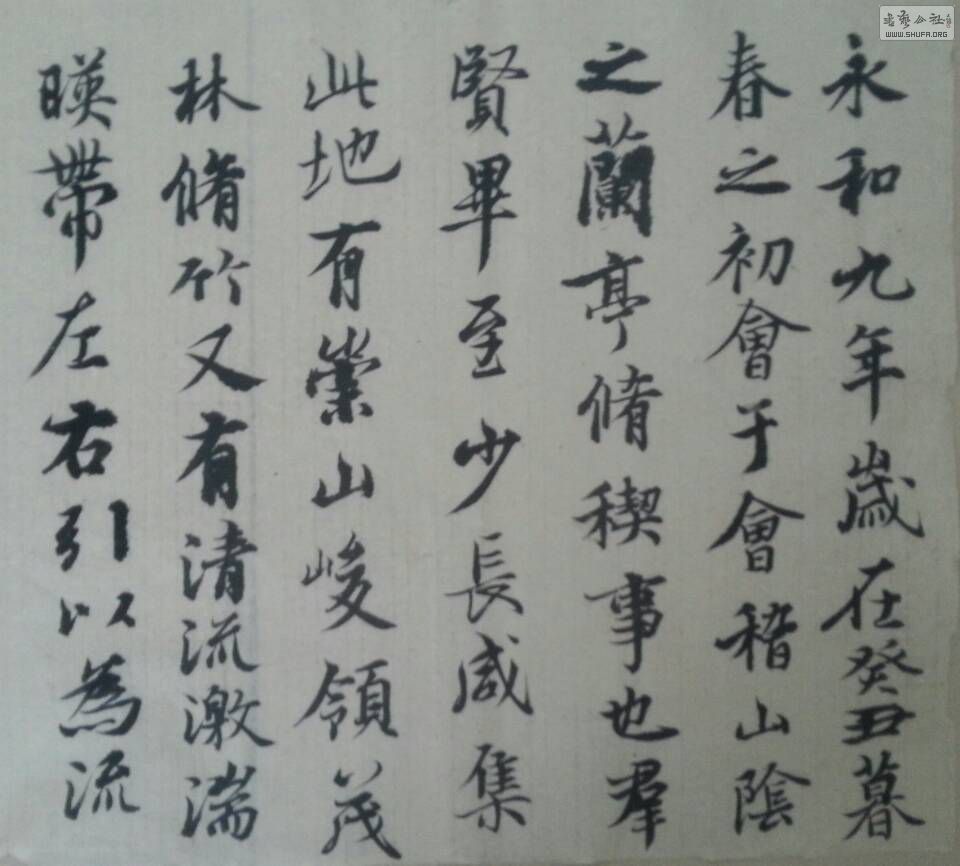 永和九年歲在癸丑暮
春之初會于會稽山陰
之蘭亭脩稧事也羣
賢畢至少長咸集
此地有崇山峻領茂
林脩竹又有清流激湍
暎帶左右引以為流
書藝公社
WWW.SHUFA.ORG